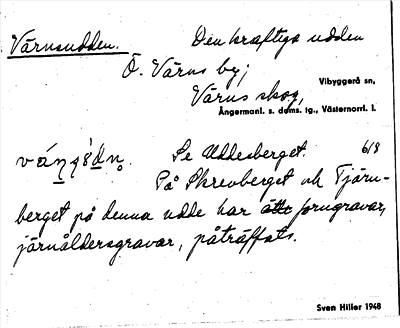 Värnsudden. Den kraftiga udden
Ö. Värns by;
Vibyggerå sn,
Värns skog,
Ångermanl. s. doms. tg., Västernorrl. l.
Se Uddesberget. 6/8
På Skrevberget och Tjärn-
berget på denna udde har forngravar,
järnåldersgravar, påträffats.
Sven Hiller 1948